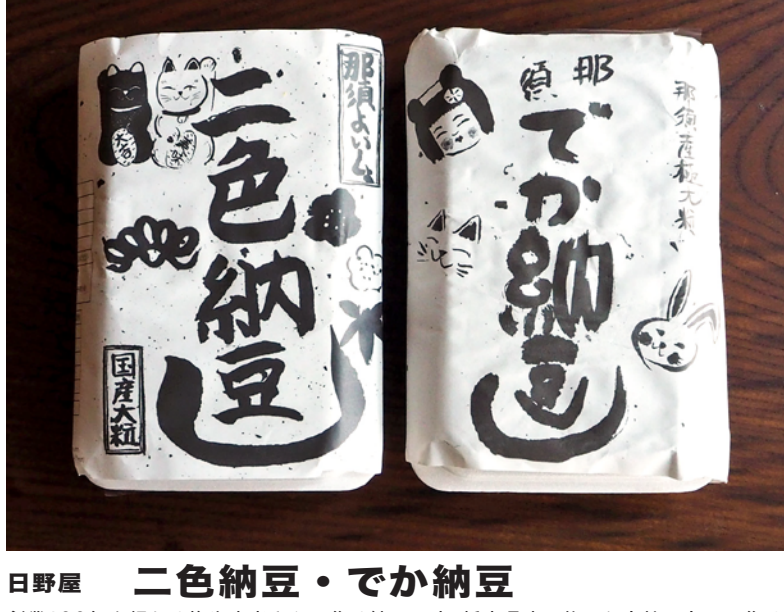 那須よいしょ
二色納豆
国産大粒
大吉
那須
でか納豆
那須産極大粒
日野屋
二色納豆・でか納豆